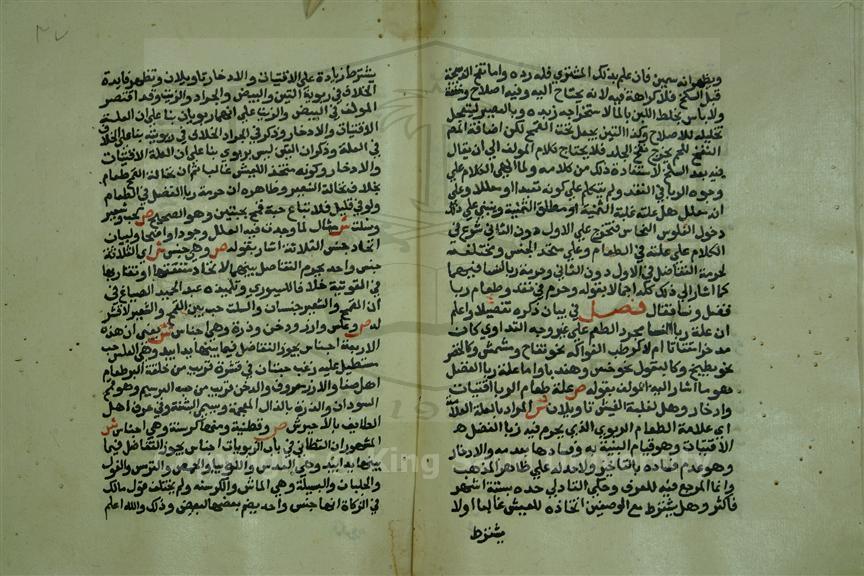 ويظهر انه سمين فان علم بذلك المشتري فله رده واما نفخ الذبيحة
قبل السلخ فلا كراهة فيه لانه يحتاج اليه وفيه اصلاح ومنفعة
ولا باس بخلط اللبن بالماء لاستخراج زبده وبالعصير ليتعجل
تخليله للاصلاح وكذا التبن يجعل تحت القمح لكن اضافة المص
النفخ للحم يخرج نفخ الجلد فلا يحتاج كلام المولف الى ان يقال
فيه بعد السلخ لاستفادة ذلك من كلامه ولما انهى الكلام على
وجوه الربا في النقد ولم يتكلم على كونه تعبدا او معللا وعلى
انه معلل هل علته غلبة الثمنية او مطلق الثمنية وينبني على ذلك
دخول الفلوس النحاس فتخرج على الاول دون الثاني شرع في
الكلام على علته في الطعام وعلى متحد الجنس ومختلفه
لحرمة التفاضل في الاول دون الثاني وحرمة ربا النسا فيهما
كما اشار الى ذلك كله اجمالا بقوله وحرم في نقد وطعام ربا
فضل ونسا فقال فصل في بيان ذكره تفصيلا واعلم
ان علة ربا النسا مجرد الطعم على غير وجه التداوي كان
مدخرا مقتاتا ام لا كرطب الفواكه نحو تفاح ومشمش وكالخضر
نحو بطيخ وكالبقول نحو خس وهندبا واما علة ربا الفضل
فهو ما اشار اليه المولف بقوله ص علة طعام الربا اقتيات
وادخار وهل لغلبة العيش تاويلان ش المراد بالعلة العلامة
اي علامة الطعام الربوي الذي يحرم فيه ربا الفضل هو
الاقتيات وهو قيام البنية به وفسادها بعدمه والادخار
وهو عدم فساده بالتاخير ولا حد له على ظاهر المذهب
وانما المرجع فيه للعرف وحكى التادلي حده بستة اشهر
فاكثر وهل يشترط مع الوصفين اتخاذه للعيش غالبا اولا
يشترط
يشترط زيادة على الاقتيات والادخار تاويلان وتظهر فايدة
الخلاف في ربوية التين والبيض والجراد والزيت وقد اقتصر
المولف في البيض والزيت على انهما ربويان بناء على ان العلة
الاقتيات والادخار وذكر في الجراد الخلاف في ربويته بناء على الخلاف
في العلة وذكر ان التين ليس بربوي بناء على ان العلة الاقتيات
والادخار وكونه متخذا للعيش غالبا ثم ان نخالة القمح طعام
بخلاف نخالة الشعير وظاهره ان حرمة ربا الفضل في الطعام
ولو في قليل فلا تباع حبة قمح بحبتين وهو الصحيح ص كحب وشعير
وسلت ش مثال لما وجدت فيه العلل وجودا واضحا ولبيان
اتحاد جنس الثلاثة اشار بقوله ص وهي جنس ش اي الثلاثة
جنس واحد يحرم التفاضل بينها لاتحاد منفعتها او تقاربها
في القوتية خلافا للسيوري وتلميذه عبد الحميد الصباغ في
ان القمح والشعير جنسان والسلت حب بين القمح والشعير لا قشر
له ص وعلس وارز ودخن وذرة وهي اجناس ش يعني ان هذه
الاربعة اجناس يجوز التفاضل فيما بينها يدا بيد وهي العلس حب
مستطيل عليه زغب حبتان في قشرة قريب من خلقة البر طعام
اهل صنعا والارز معروف والدخن قريب من حب البرسيم وهو قمح
السودان والذرة بالذال المعجمة ويسمى البشنة وفي عرف اهل
الطايف بالاحبرش ص وقطنية ومنها كرسنة وهي اجناس ش
المشهور ان القطاني في باب الربويات اجناس يجوز التفاضل فيما
بينها يدا بيد وهي العدس واللوبيا والحمص والترمس والفول
والجلبان والبسيلة وهي الماش والكرسنه ولم يختلف قول مالك
في الزكاة انها جنس واحد يضم بعضها لبعض وذلك والله اعلم